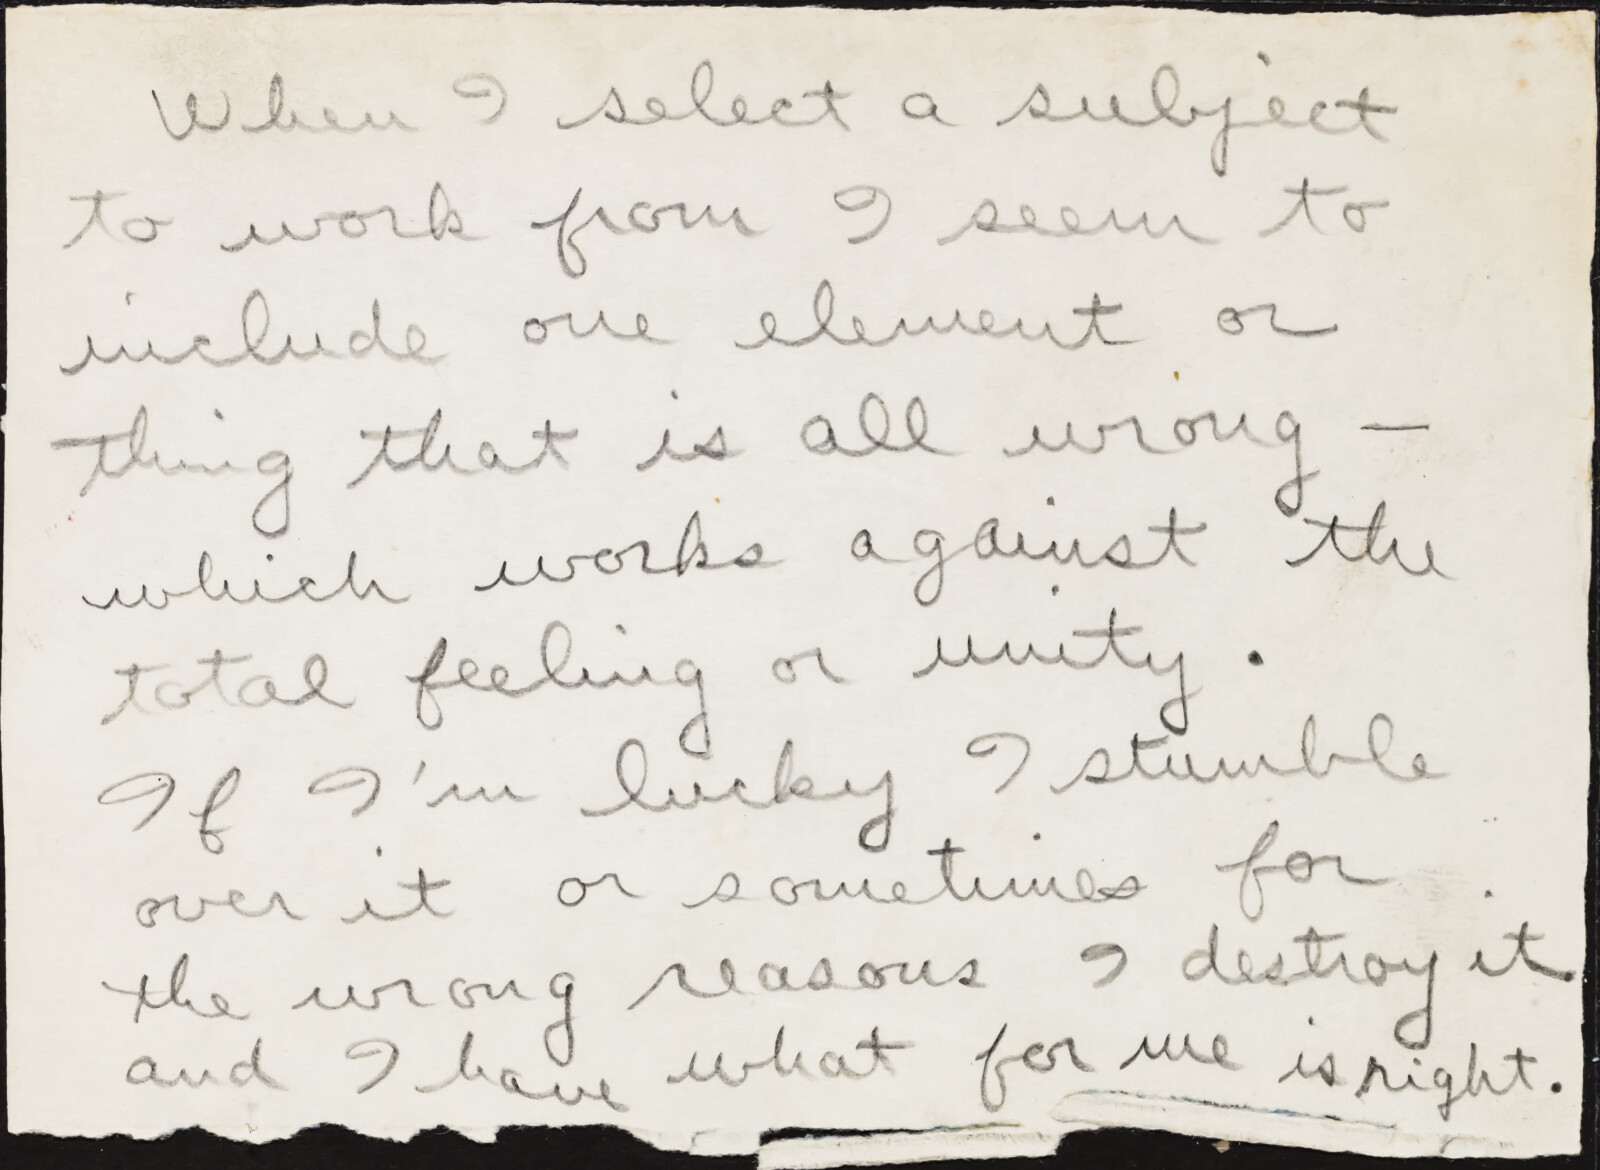 When I select a subject
to work from I seem to
include one element or
thing that is all wrong –
which works against the
total feeling or unity.
If I'm lucky I stumble
over it or sometimes for
the wrong reasons I destroy it
and I have what for me is right.